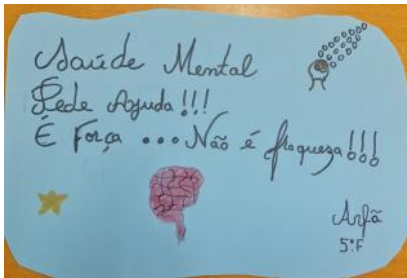 Saúde Mental
Pede Ajuda!!!
É Força ... Não é fraqueza!!!
Arfã
5ºF